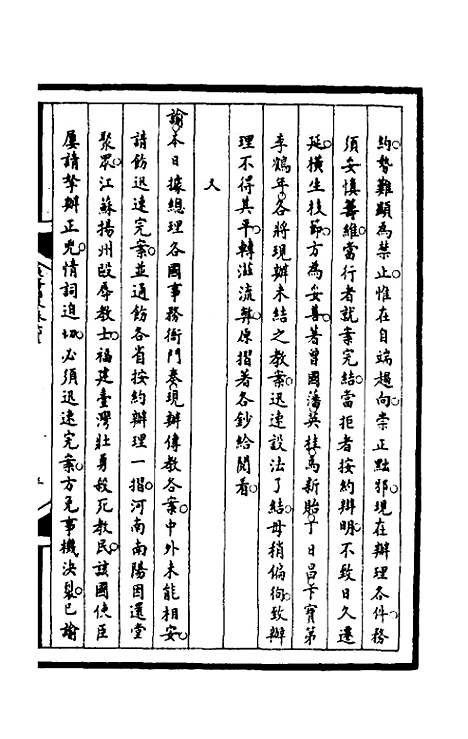 約勢難顯為禁止惟在自端趨向崇正黜邪現在辦理各件務
須妥慎籌維當行者就案完結當拒者按約辯明不致日久遷
延橫生枝節方為妥善著曾國藩英桂馬新貽丁日昌卞寶第
李鶴年各將現辦未結之教案迅速設法了結毋稍偏徇致辦
理不得其平轉滋流弊原摺著各鈔給閱看
又
諭本日據總理各國事務衙門奏現辦傳教各案中外未能相安
請飭迅速完案並通飭各省按約辦理一摺河南南陽因還堂
聚眾江蘇揚州毆辱教士福建臺灣壯勇殺死教民該國使臣
屢請拏辦正兇情詞迫切必須迅速完案方免事機決裂已諭